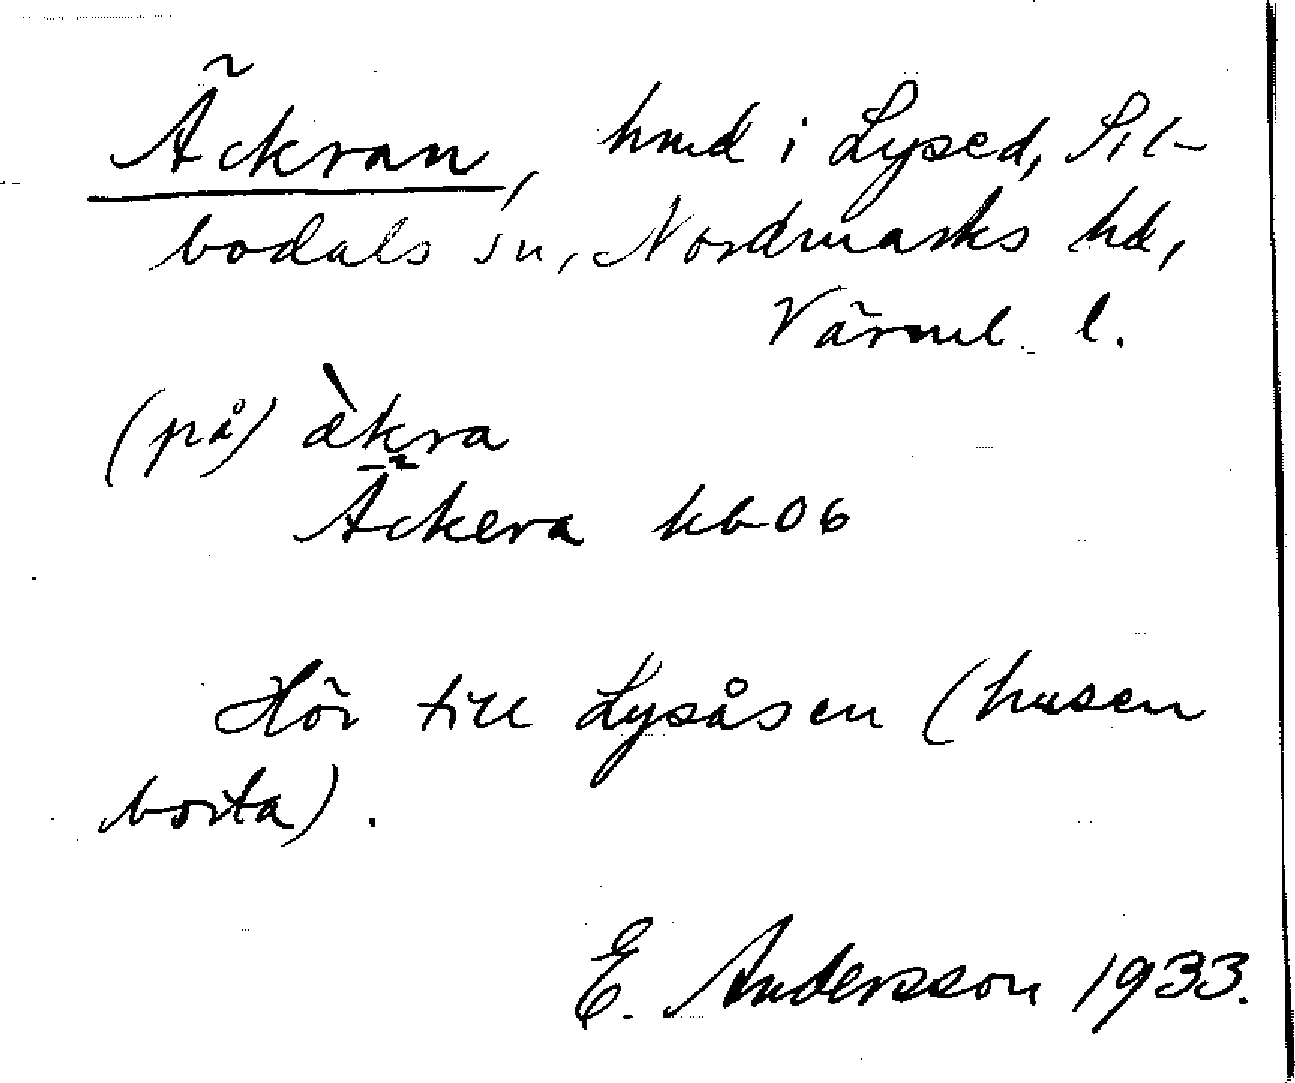 Äckran, hmd i Lysed, Sil-
bodals sn, Nordmarks hd,
Värml. l.
(på) ὰkra
Äckera kb 06
Hör till Lysåsen (husen
borta).
E. Andersson 1933.